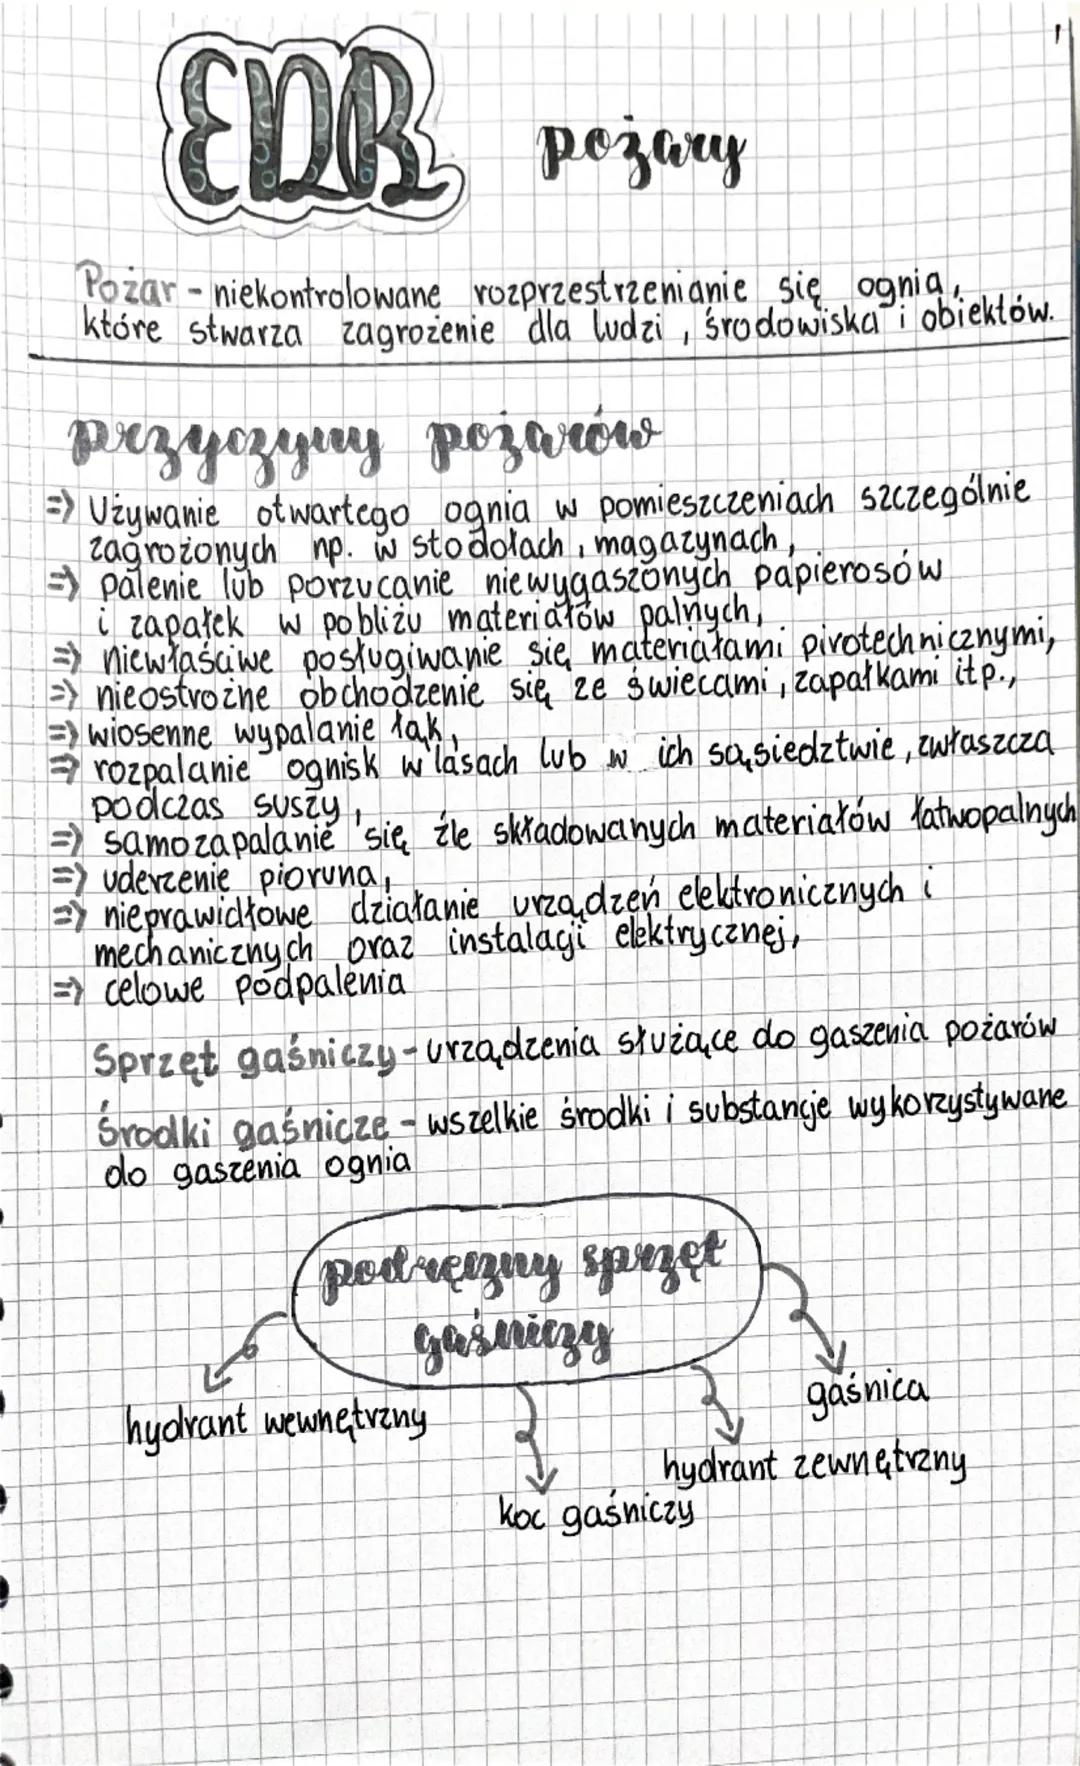 EDB pożary
Pożar - niekontrolowane rozprzestrzenianie się ognia,
które stwarza zagrożenie dla ludzi, środowiska i obiektów.
przyczyny pożarów
=> Używanie otwartego ognia w pomieszczeniach szczególnie
zagrożonych np. w stodołach, magazynach,
=> palenie lub porzucanie niewygaszonych papierosów
i zapałek w pobliżu materiałów palnych,
=> niewłaściwe posługiwanie się materiałami pirotechnicznymi,
=> nieostrożne obchodzenie się ze świecami, zapałkami itp.,
=> wiosenne wypalanie łąk,
=> rozpalanie ognisk w lasach lub w ich sąsiedztwie, zwłaszcza
podczas suszy,
=> samozapalanie się źle składowanych materiałów łatwopalnych
=> uderzenie pioruna,
=> nieprawidłowe działanie urządzeń elektronicznych i
mechanicznych oraz instalacji elektrycznej,
=> celowe podpalenia
Sprzęt gaśniczy - urządzenia służące do gaszenia pożarów
Środki gaśnicze - wszelkie środki i substancje wykorzystywane
do gaszenia ognia
podręczny sprzęt
gaśniczy
gaśnica
hydrant wewnętrzny
hydrant zewnętrzny
koc gaśniczy